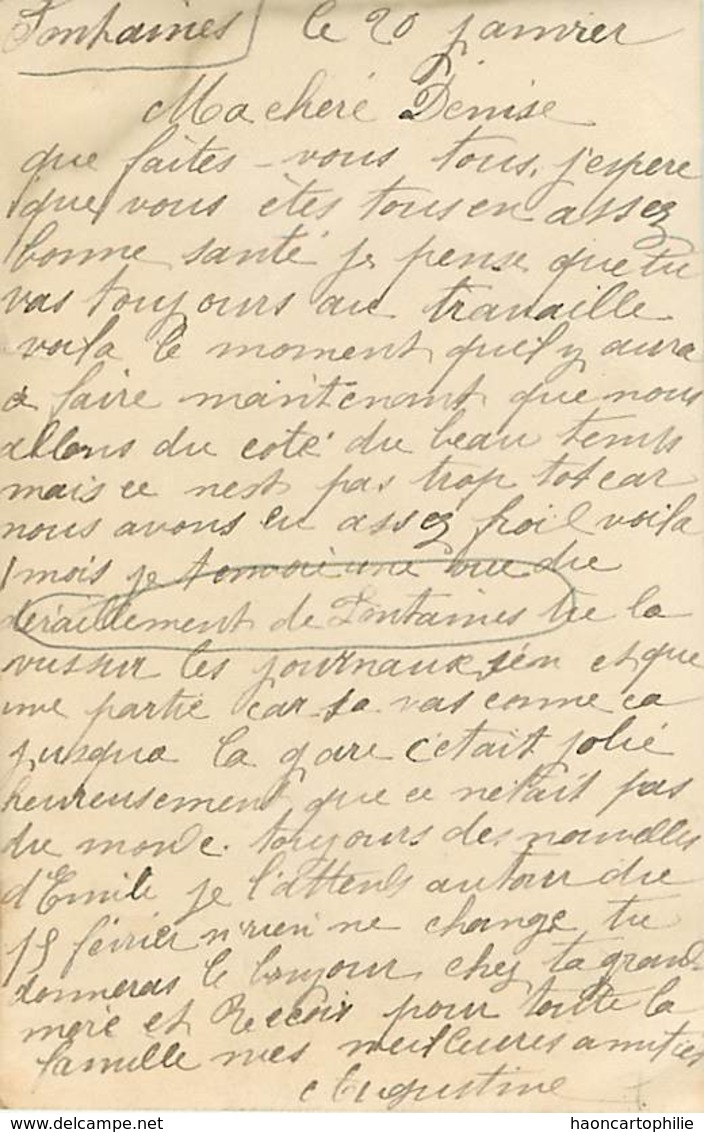 Fontaines le 20 janvier
Ma cheré Denise
que faites-vous tous, j'espere
que vous êtes tous en assez
bonne santé je pense que tu
vas toujours au travaille
voila le moment quil y aura
a faire maintenant que nous
allons du coté du beau temps
mais ce nest pas trop tot car
nous avons eu assez froid voila
1 mois je t'envoie une vue du
deraillement de Fontaines tu la
vus sur les journaux s'en et que
une partie car sa vas comme ca
jusqua la gare c'etait jolie
heureusement que ce netait pas
du monde. toujours des nouvelles
d'Emile je l'attends autour du
15 février n'rien ne change, tu
donneras le bonjour chez ta grand
mère et Recois pour toute la
famille mes meilleures amitiés
Augustine
haoncartophilie